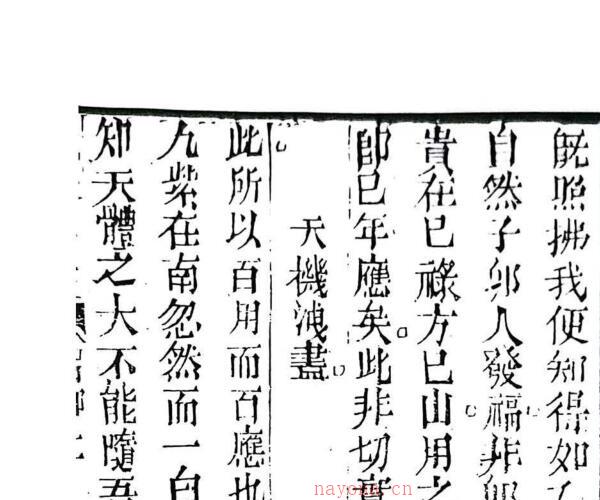 既照拂我便知得如
自然子卯人發福非
貴在巳祿方巳山用之
師巳年應矣此非切
天機洩盡
此所以百用而百應也
九紫在南忽然而一白
知天體之大不能隨吾
nayona.cn